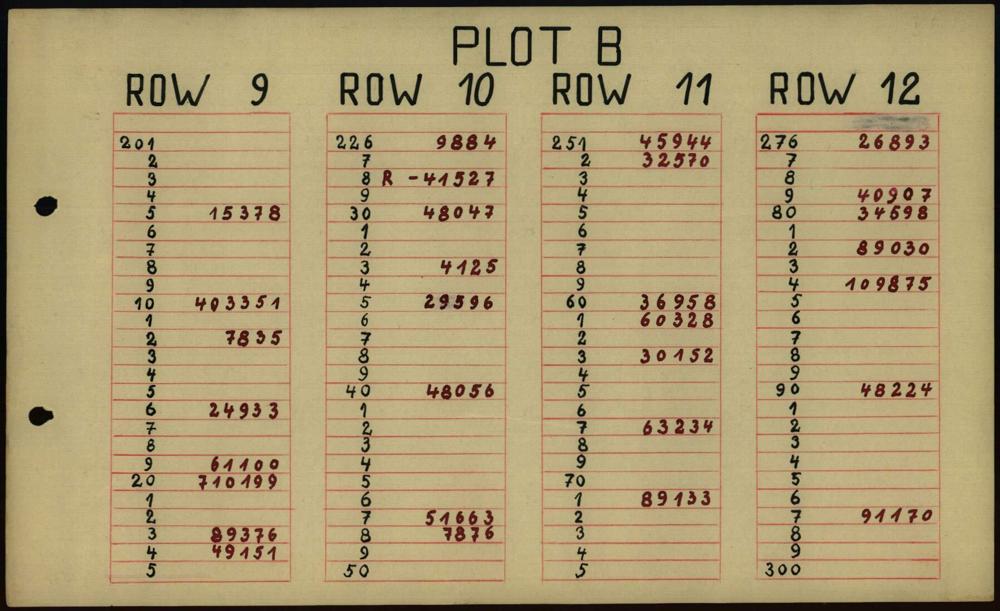 PLOT B
ROW 9
201
2
3
4
5 15378
6
7
8
9
10 403351
1
2 7835
3
4
5
6 24933
7
8
9 61100
20 710199
1
2
3 89376
4 49151
5
ROW 10
226 9884
7
8 R -41527
9
30 48047
1
2
3 4125
4
5 29596
6
7
8
9
40 48056
1
2
3
4
5
6
7 51663
8 7876
9
50
ROW 11
251 45944
2 32570
3
4
5
6
7
8
9
60 36958
1 60328
2
3 30152
4
5
6
7 63234
8
9
70
1 89133
2
3
4
5
ROW 12
276 26893
7
8
9 40907
80 34698
1
2 89030
3
4 109875
5
6
7
8
9
90 48224
1
2
3
4
5
6
7 91170
8
9
300